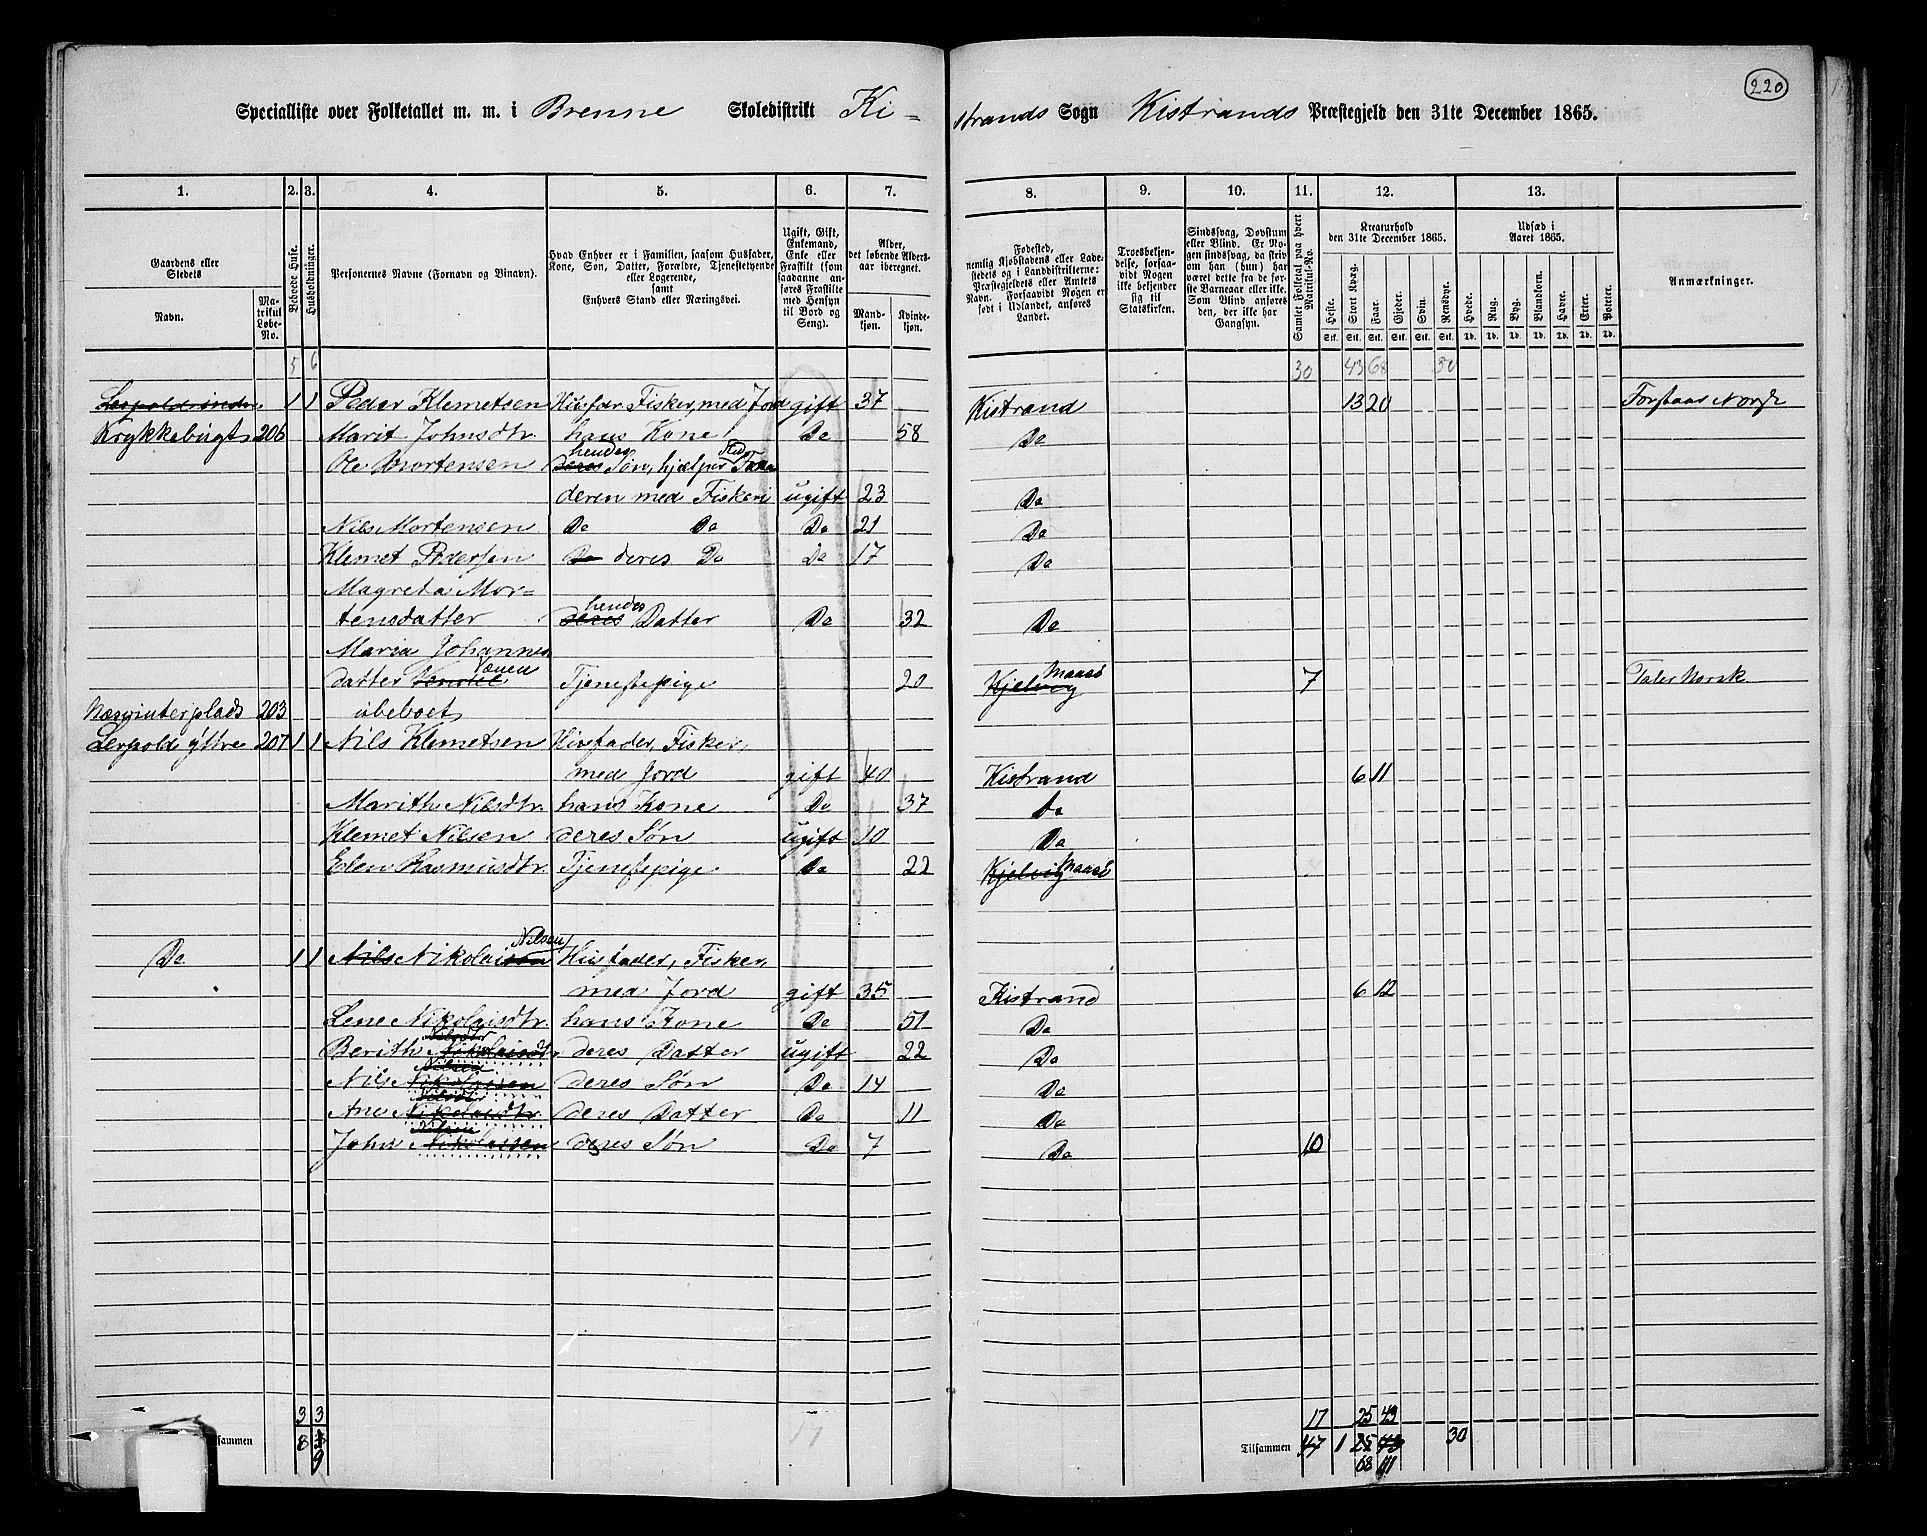 220
Specialliste over Folketallet m. m. i Brenne Skoledistrikt Ki-strands Sogn Kistrands Præstegjeld den 31te December 1865.
1. 2. 3. 4. 5. 6. 7. 8. 9. 10. 11. 12. 13.
Gaardens eller Stedets Navn. Matrikul Løbe-No.
Beboede Huse.
Husholdninger.
Personernes Navne (Fornavn og Binavn).
Hvad Enhver er i Familien, saasom Husfader, Kone, Søn, Datter, Forældre, Tjenestetyende eller Logerende, samt Enhvers Stand eller Næringsvei.
Ugift, Gift, Enkemand, Enke eller Fraskilt (som saadanne anføres Fraskilte med Hensyn til Bord og Seng).
Alder, det løbende Aldersaar iberegnet. Mandkjøn. Kvindekjøn.
Fødested, nemlig Kjøbstadens eller Ladestedets og i Landdistrikterne: Præstegjeldets eller Amtets Navn. Forsaavidt Nogen er født i Udlandet, anføres Landet.
Troesbekjendelse, forsaavidt Nogen ikke bekjender sig til Statskirken.
Sindssvag, Døvstum eller Blind. Er Nogen sindssvag, da skriv om han (hun) har været dette fra de første Barneaar eller ikke. Som Blind anføres den, der ikke har Gangsyn.
Samlet Folketal paa hvert Matrikul-No.
Kreaturhold den 31te December 1865. Heste. Stort Kvæg. Faar. Gjeder. Svin. Rensdyr.
Udsæd i Aaret 1865. Hvede. Rug. Byg. Blandkorn. Havre. Erter. Poteter.
Anmærkninger.
5 6 30 43 68 30
1 1 Peder Klemetsen Husfar Fisker, med Jord gift 37 Kistrand 13 20 Forstaar Norsk
Krykkebugt 206 Marit Johnsdtr. hans Kone Do 58 Do
Ole Mortensen hendes Søn, hjælper
deren med Fiskeri ugift 23 Do
Nils Mortensen Do Do Do 21 Do
Klemet Pedersen Do deres Do Do 17 Do
Magreta Mor-
tensdatter deres hendes Datter Do 32 Do
Maria Johannes
datter Tjenestepige 20 Kjelvig Maasö 7 Taler Norsk
203 ubeboet
Leirpold yttre 207 1 1 Nils Klemetsen Husfader, Fisker,
med Jord gift 40 Kistrand 6 11
Marith Nilsdtr. hans Kone Do 37 Do
Klemet Nilsen deres Søn ugift 10 Do
Elen Rasmusdtr. Tjenestepige Do 22 Kjelvig Maasö
Do 1 1 Nils Nikolaisen Nilsen Husfader, Fisker,
med Jord gift 35 Kistrand 6 12
Lene Nikolaisdtr. hans Kone Do 51 Do
Berith Nikolaisdtr. Nilsdtr deres Datter ugift 22 Do
Nils Nikolaisen Nilsen deres Søn Do 14 Do
Ane Nikolaisdtr. Nilsdtr deres Datter Do 11 Do
John Nikolaisen Nilsen deres Søn Do 7 Do 10
3 3 17 17 25 43
Tilsammen 8 9 Tilsammen 47 1 25 43 30
68 111